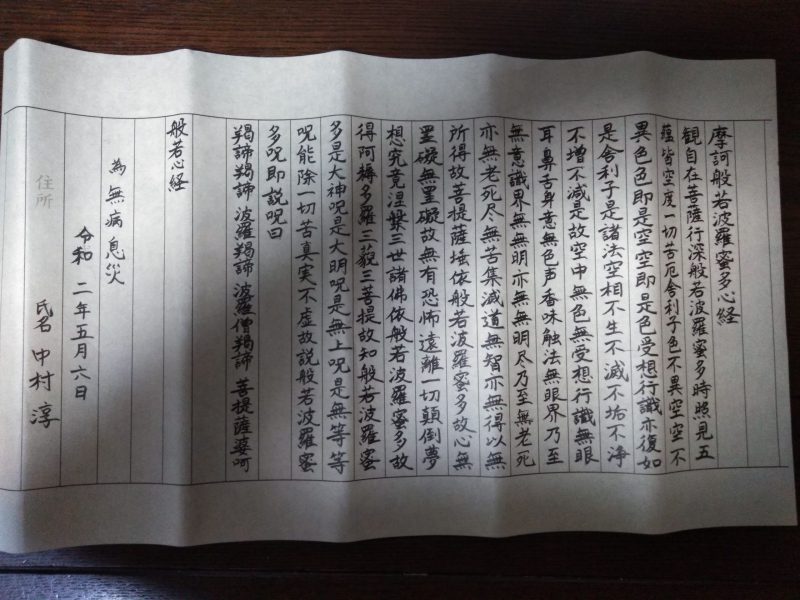 摩訶般若波羅蜜多心経
観自在菩薩行深般若波羅蜜多時照見五
蘊皆空度一切苦厄舎利子色不異空空不
異色色即是空空即是色受想行識亦復如
是舎利子是諸法空相不生不滅不垢不浄
不増不減是故空中無色無受想行識無眼
耳鼻舌身意無色声香味触法無眼界乃至
無意識界無無明亦無無明尽乃至無老死
亦無老死尽無苦集滅道無智亦無得以無
所得故菩提薩埵依般若波羅蜜多故心無
罣礙無罣礙故無有恐怖遠離一切顛倒夢
想究竟涅槃三世諸佛依般若波羅蜜多故
得阿耨多羅三藐三菩提故知般若波羅蜜
多是大神呪是大明呪是無上呪是無等等
呪能除一切苦真実不虚故説般若波羅蜜
多呪即説呪曰
羯諦羯諦 波羅羯諦 波羅僧羯諦 菩提薩婆呵
般若心経
為無病息災
令和 二年五月六日
住所
氏名 中村 淳